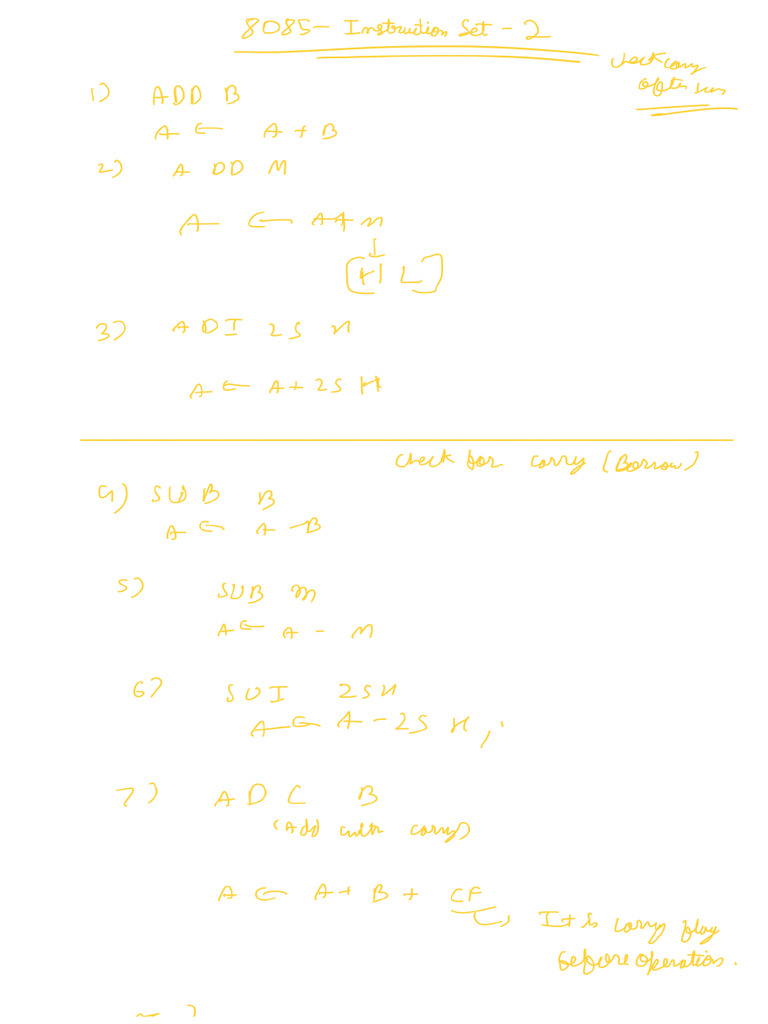 8085- Instruction Set - 2
check carry
after sum
1) ADD B
A ← A + B
2) A DD M
A ← A + M
↓
[H L]
3) ADI 25 H
A ← A + 25 H
check for carry (Borrow)
4) SUB B
A ← A - B
5) SUB M
A ← A - M
6) SUI 25H
A ← A - 25 H ;
7) ADC B
(Add with carry)
A ← A + B + CF
→ It is carry flag
before operation.